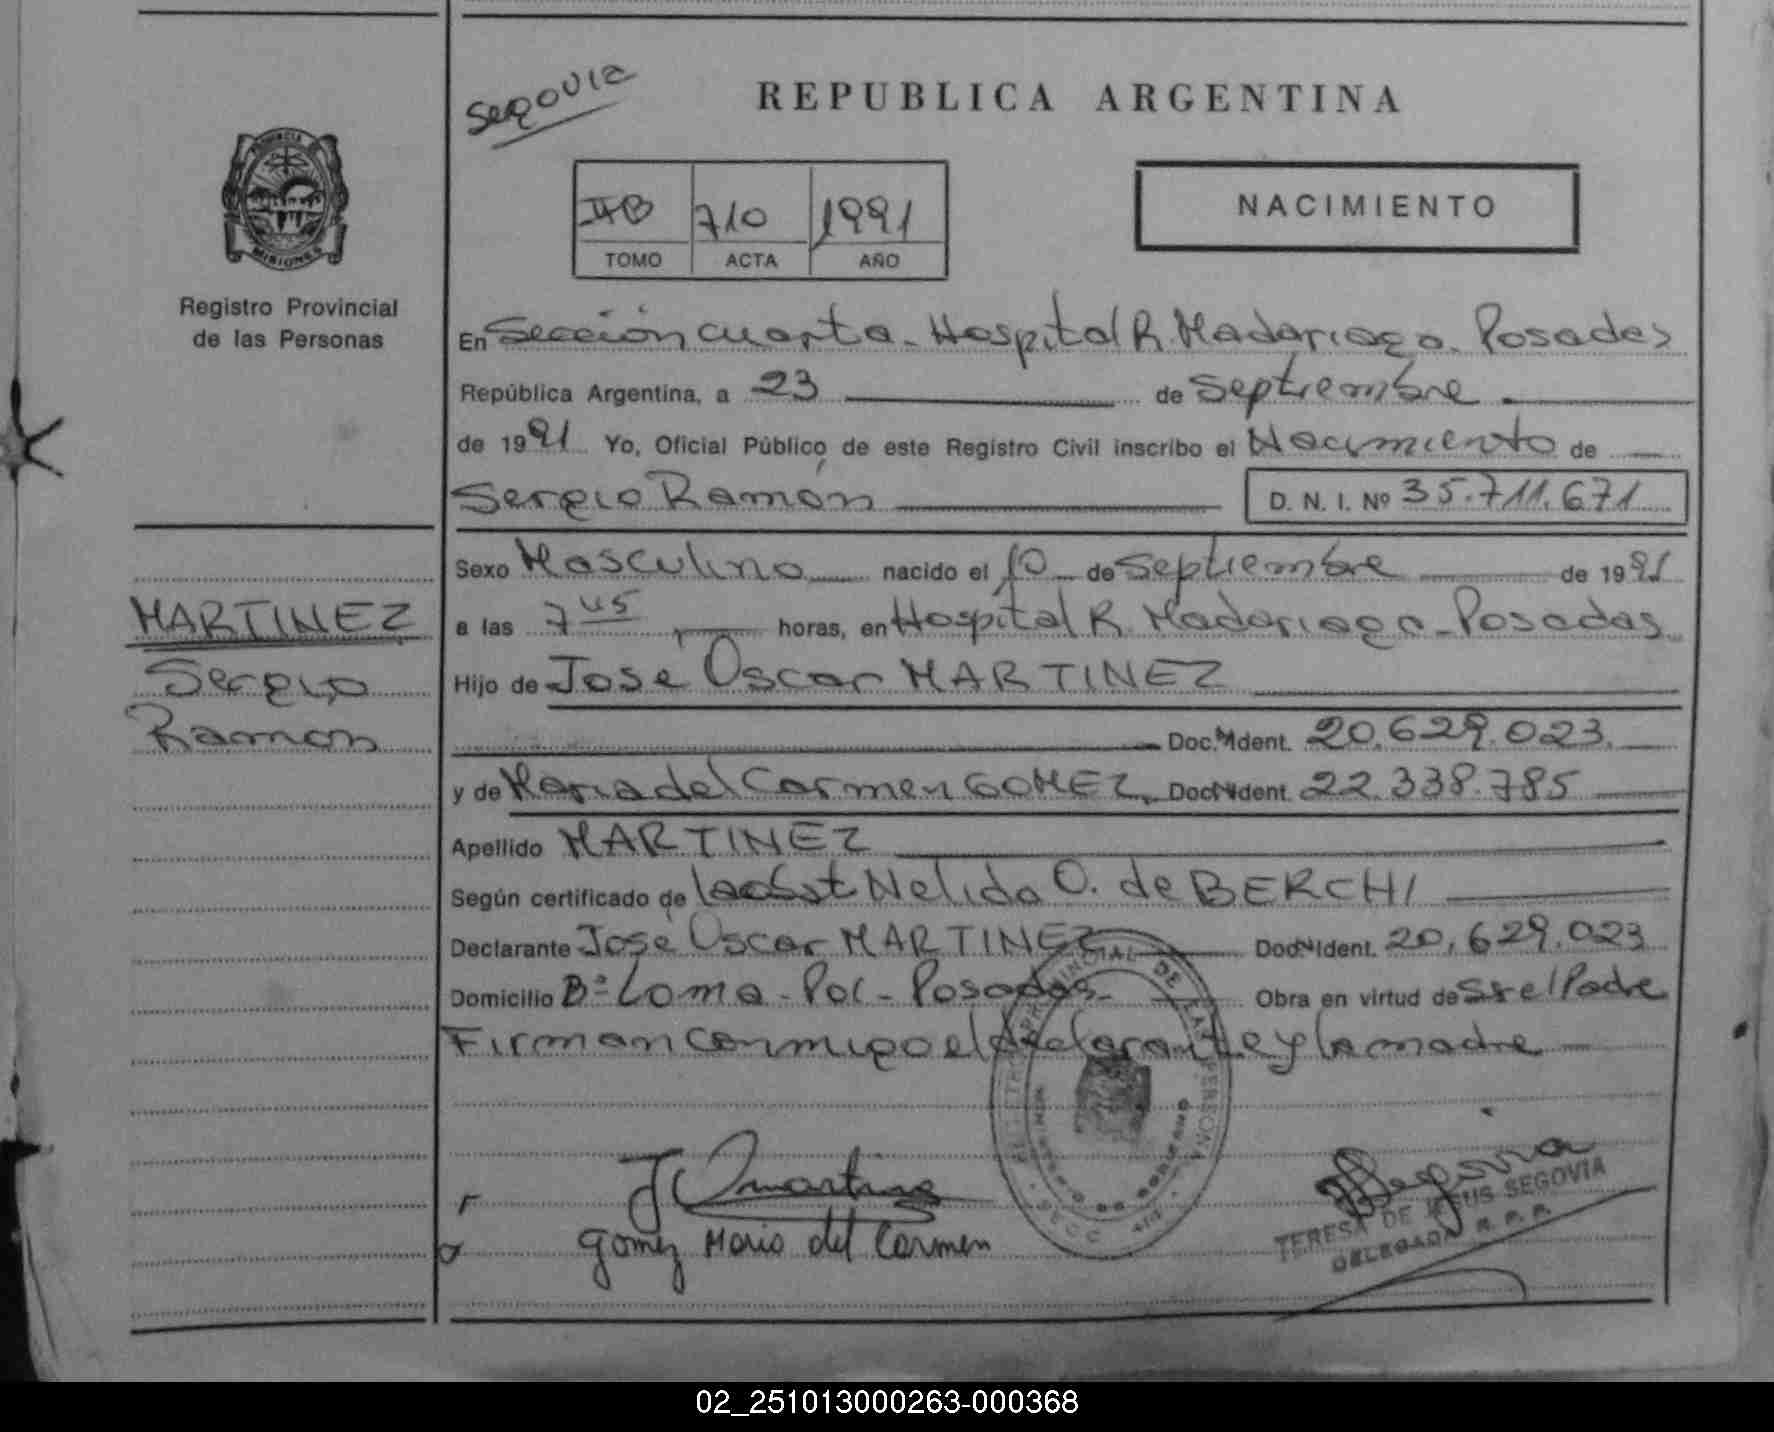 Segovia
REPUBLICA ARGENTINA
PROVINCIA DE
MISIONES
IIB 710 1991
TOMO ACTA AÑO
NACIMIENTO
Registro Provincial
de las Personas
En Sección cuarta - Hospital R. Madariaga. Posadas
República Argentina, a 23 de Septiembre
de 1991 Yo, Oficial Público de este Registro Civil inscribo el Nacimiento de
Sergio Ramón D. N. I. Nº 35.711.671
Sexo Masculino nacido el 10 de Septiembre de 1991
a las 7 45 horas, en Hospital R. Madariaga - Posadas
Hijo de José Oscar MARTINEZ
Doc. Ident. 20.629.023.
y de Maria del Carmen GOMEZ. Doc. Ident. 22.338.785
Apellido MARTINEZ
Según certificado de la obst Nelida O. de BERCHI
Declarante José Oscar MARTINEZ Doc. Ident. 20.629.023
Domicilio Bº Loma - Pol - Posadas - Obra en virtud de ss el Padre
Firman conmigo el declarante y la madre
MARTINEZ
Sergio
Ramon
Gomez Maria del Carmen
Segovia
TERESA DE JESUS SEGOVIA
DELEGADA R. P. P.
02_251013000263-000368